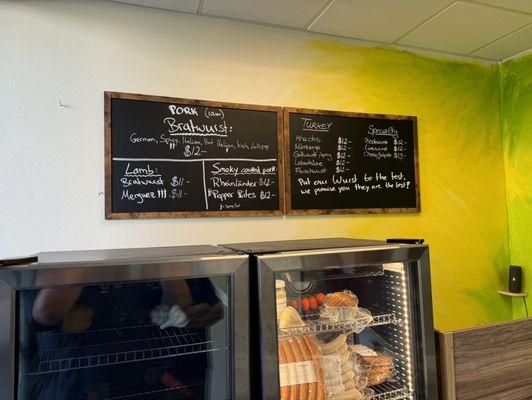 PORK (raw)
Bratwurst:
German, Spicy, Italian, Hot Italian, Irish, Lollipop
$12-
Lamb:
Bratwurst $11-
Merguez!!! $11-
Smoky cooked pork:
Rheinländer $12-
!!!Pepper Bites $12-
TURKEY
Knacks $12-
Nürnberger $12-
Grillwurst/spicy $12-
Leberkäse $12-
Fleischwurst $12-
Specialty
Bockwurst $12-
$12-
$13-
Put our Wurst to the test,
we promise you they are the best!